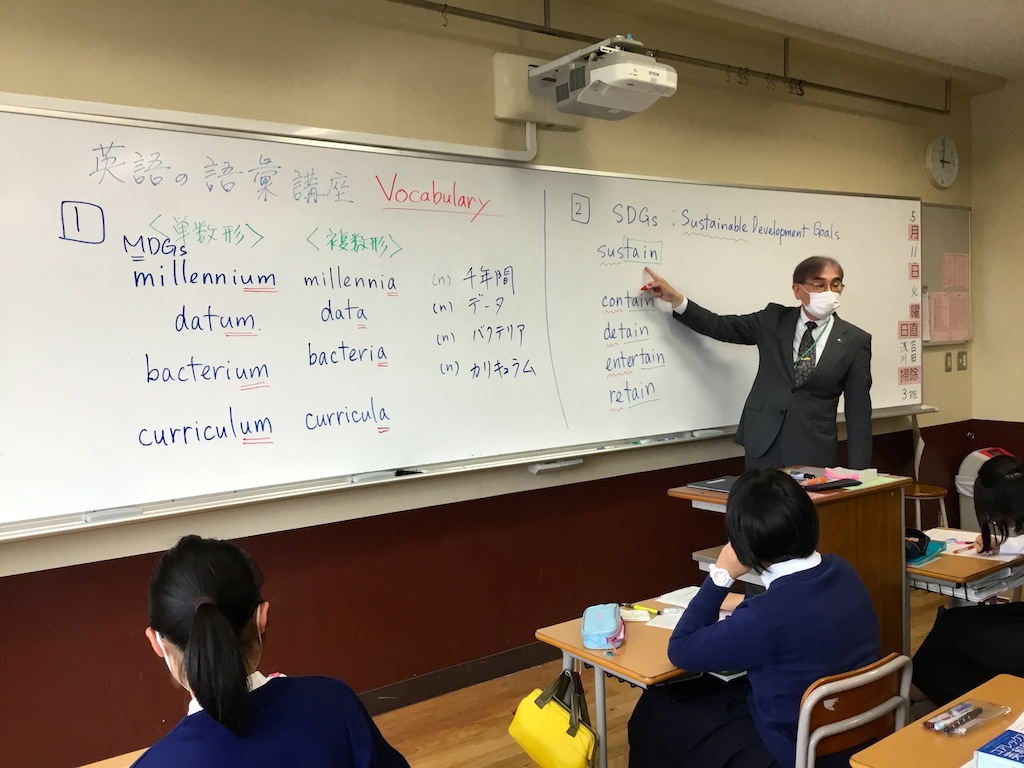 英語の語彙講座 Vocabulary
1
<単数形> <複数形>
MDGs
millennium millennia (n) 千年間
datum. data (n) データ
bacterium bacteria (n) バクテリア
curriculum curricula (n) カリキュラム
2 SDGs : Sustainable Development Goals
sustain
contain
detain
entertain
retain
5
月
11
日
火
曜
日直
浅川
吉田
掃除
3
EPSON